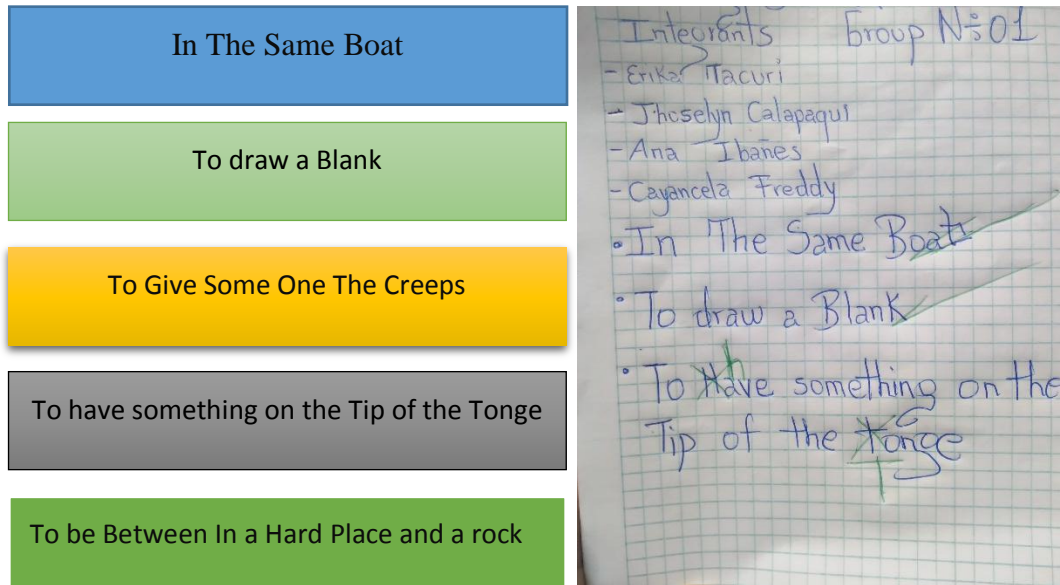 In The Same Boat
To draw a Blank
To Give Some One The Creeps
To have something on the Tip of the Tonge
To be Between In a Hard Place and a rock
Integrants Group N°01
- Erika Tacuri
- Jhoselyn Calapaqui
- Ana Ibañes
- Cayancela Freddy
• In The Same Boat
• To draw a Blank
• To have something on the
Tip of the Tonge